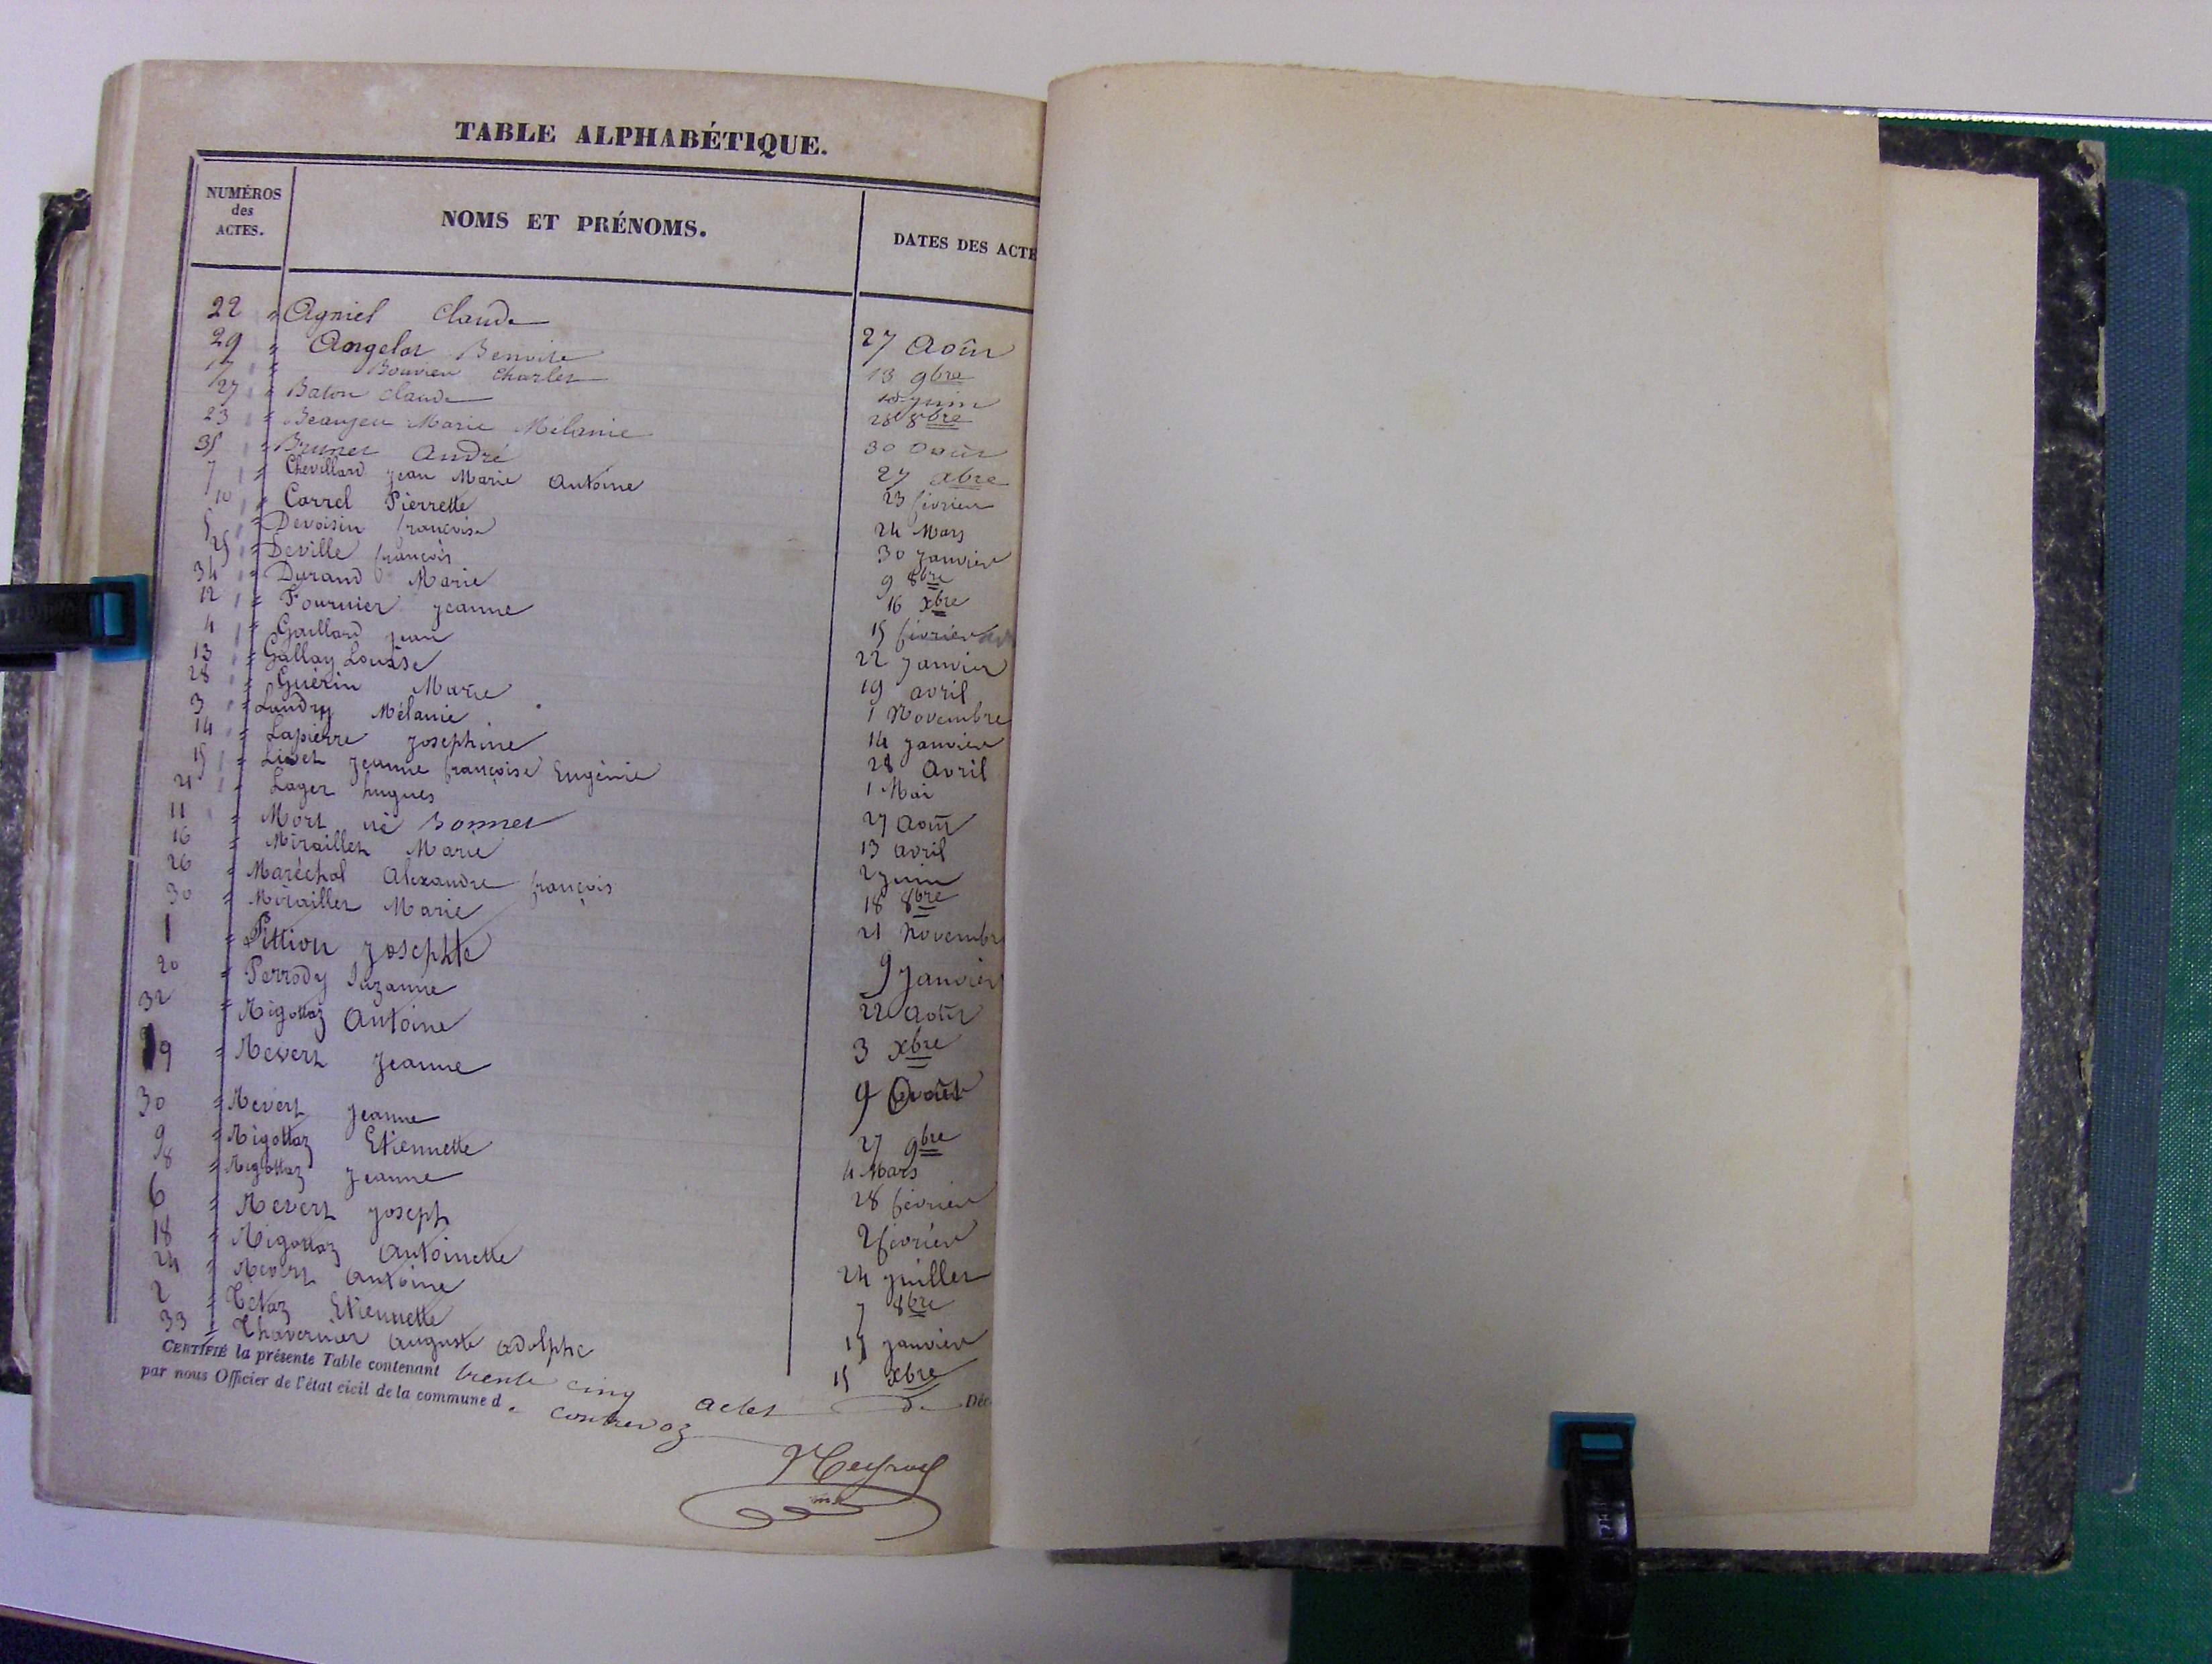 TABLE ALPHABÉTIQUE.
NUMÉROS des ACTES. NOMS ET PRÉNOMS. DATES DES ACTE
22 " Agniel Claude 27 Août
29 " Angelot Benoite 13 9bre
17 " Bouvier Charles juin
27 " Baton Claude 28 8bre
23 " Beaujeu Marie Mélanie 30 Août
35 " Brunet André 27 xbre
7 " Chevillard Jean Marie Antoine 23 février
10 " Carrel Pierrette 24 Mars
5 " Devoisin françoise 30 Janvier
25 " Deville françois 9 8bre
34 " Durand Marie 16 xbre
12 " Fournier Jeanne 15 février
4 " Gaillard Jean 22 Janvier
13 " Gallay Louise 19 avril
28 " Guérin Marie 1 Novembre
3 " Landry Mélanie 14 Janvier
14 " Lapierre Josephine 28 Avril
15 " Livet Jeanne françoise Eugénie 1 Mai
21 " Lager hugues 27 Août
11 " Mort né Bonnet 13 avril
16 " Miraillet Marie 2 juin
26 " Maréchal Alexandre françois 18 8bre
30 " Miraillet Marie 21 Novembr
1 " Pittion Josephte 9 Janvier
20 " Perrody Suzanne 22 Août
32 " Rigottaz Antoine 3 xbre
19 " Revert Jeanne 9 Août
30 " Revert Jeanne 27 9bre
9 " Rigottaz Etiennette 4 Mars
8 " Rigottaz Jeanne 28 février
6 " Revert Joseph 2 février
18 " Rigottaz Antoinette 24 Juillet
24 " Revert Antoine 7 8bre
2 " Tétaz Etiennette 13 janvier
33 " Thavernier Auguste Adolphe 15 xbre
CERTIFIÉ la présente Table contenant trente cinq actes
par nous Officier de l'état civil de la commune d e Contrevoz Déc